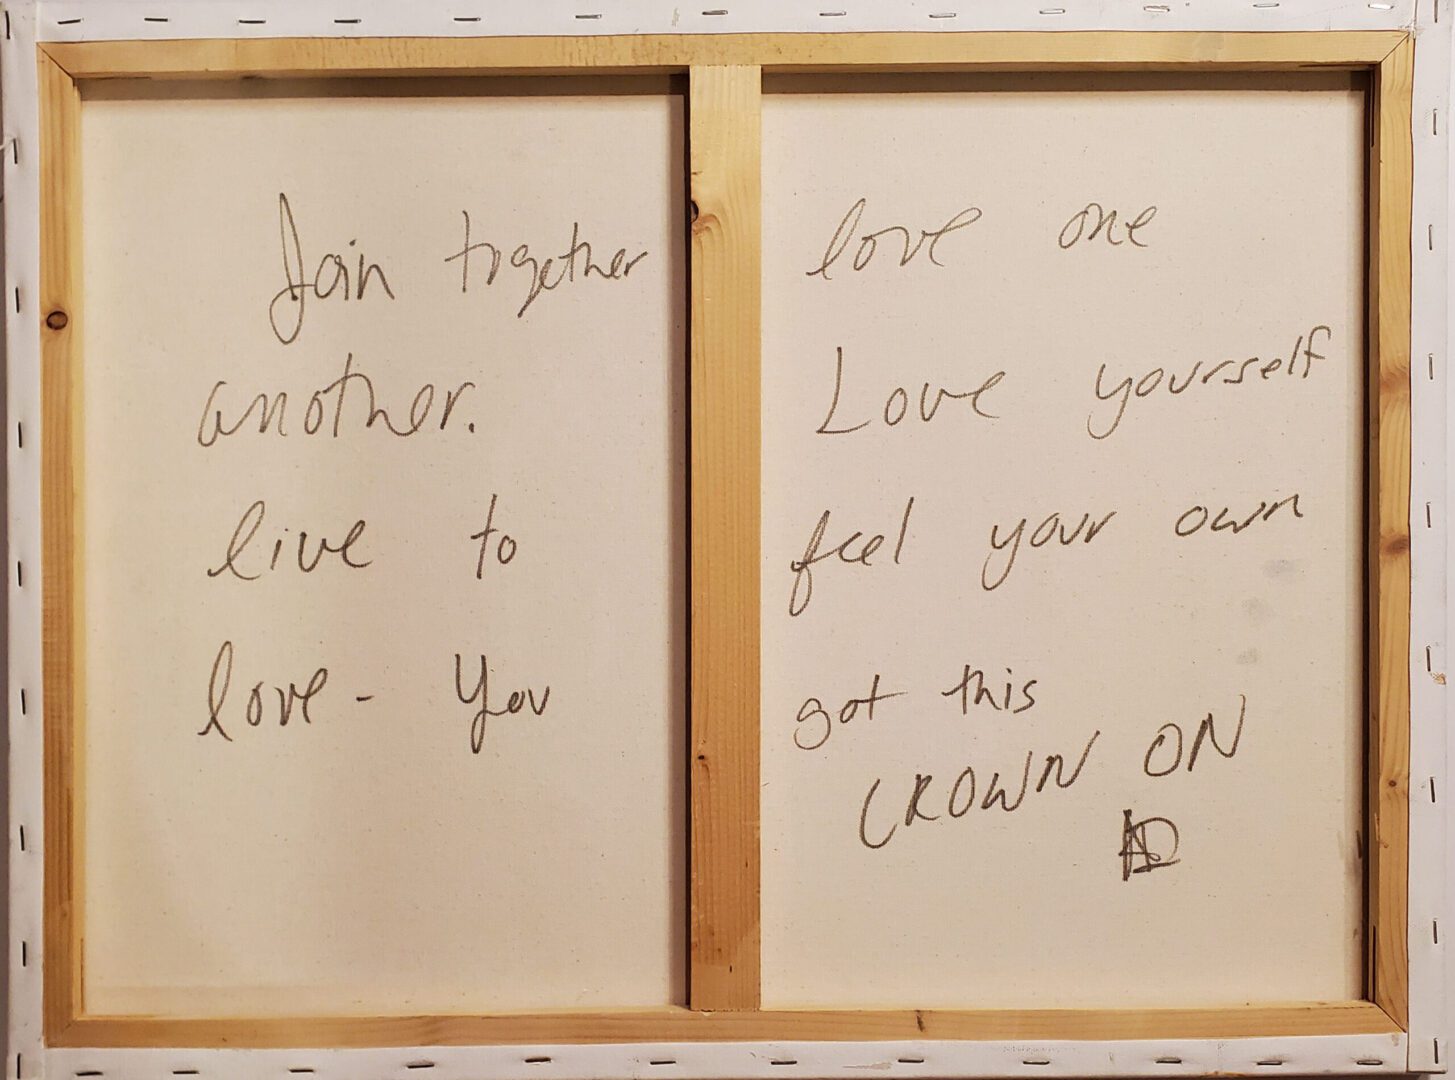 Join together love one
another. Love yourself
live to feel your own
love - You got this
CROWN ON